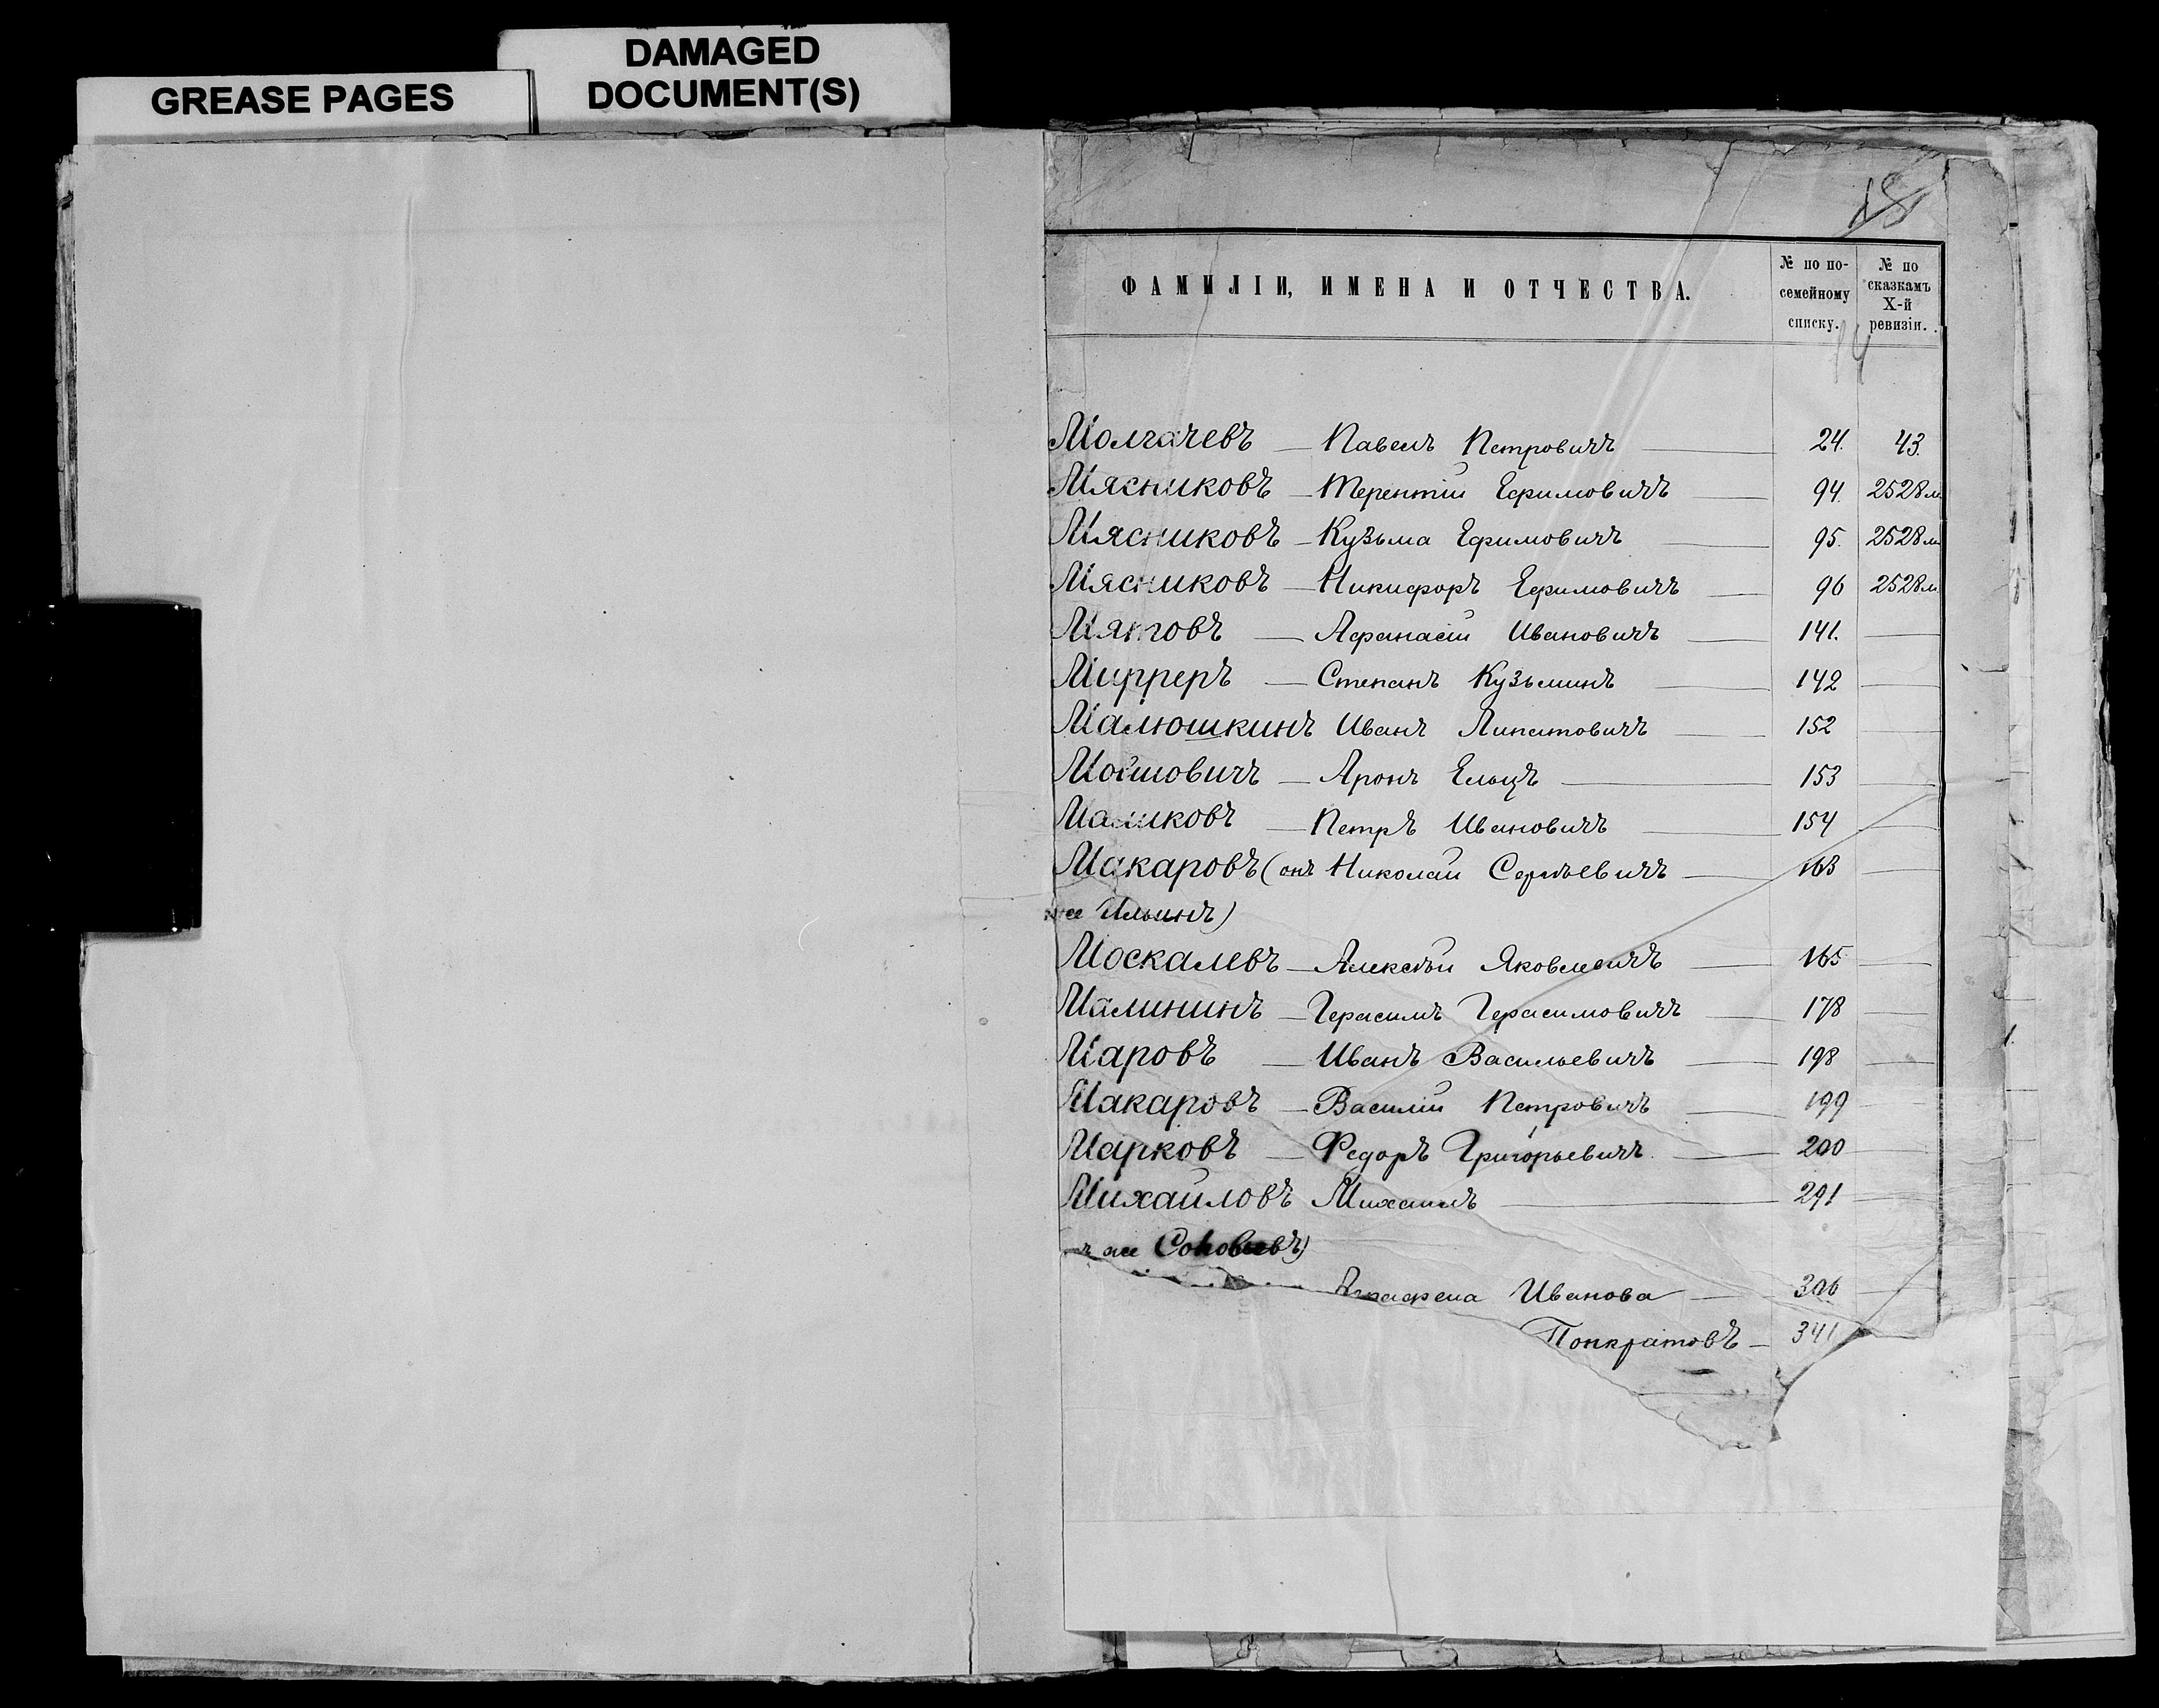 GREASE PAGES
DAMAGED
DOCUMENT(S)
18
ФАМИЛІИ, ИМЕНА И ОТЧЕСТВА.
№ по по-
семейному
списку.
№ по
сказкамъ
X-й
ревизіи.
Молгачевъ — Павелъ Петровичъ — 24. 43.
Мясниковъ — Терентій Ефимовичъ — 94. 2528 м
Мясниковъ — Кузьма Ефимовичъ — 95. 2528 м
Мясниковъ — Никифоръ Ефимовичъ — 96 2528 м
Мятовъ — Афанасій Ивановичъ — 141. —
Мирреръ — Степанъ Кузьминъ — 142 —
Малюшкинъ Иванъ Липатовичъ — 152
Мойшовичъ — Аронъ Ельцъ — 153 —
Маликовъ — Петръ Ивановичъ — 154 —
Макаровъ (онъ Николай Сергѣевичъ — 163 —
же Ильинъ)
Москалевъ — Алексѣй Яковлевичъ — 165 —
Малининъ — Герасимъ Герасимовичъ — 178 —
Маровъ — Иванъ Васильевичъ — 198 —
Макаровъ — Василій Петровичъ — 199
Марковъ — Федоръ Григорьевичъ — 200 —
Михайловъ Михаилъ — 291 —
ъ же Соловьевъ)
Аграфена Иванова — 306 —
Понкратовъ — 341